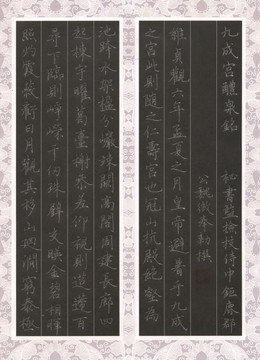 九成宮醴泉銘 秘書監檢校侍中鉅鹿郡
公魏徵奉勅撰
維貞觀六年孟夏之月皇帝避暑于九成
之宮此則隨之仁壽宮也冠山抗殿絕壑為
池跨水架楹分巖竦闕高閣周建長廊四
起棟宇膠葛臺榭參差仰視則迢遰百
尋下臨則崢嶸千仞珠璧交暎金碧相暉
照灼雲霞蔽虧日月觀其移山迴澗窮泰極